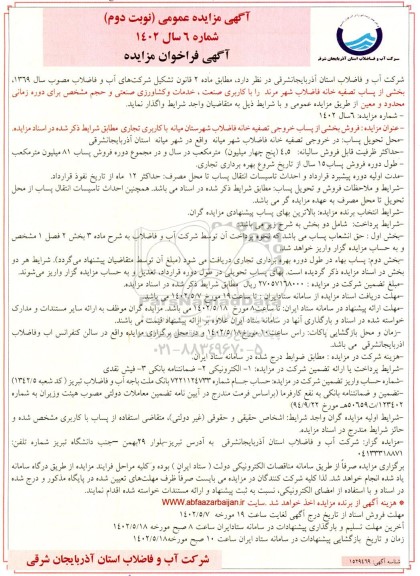 آگهی مزایده عمومی (نوبت دوم)
شماره ۶ سال ۱۴۰۲
آگهی فراخوان مزایده
شرکت آب و فاضلاب استان آذربایجان شرقی
شرکت آب و فاضلاب استان آذربایجانشرقی در نظر دارد، مطابق ماده ۲ قانون تشکیل شرکت‌های آب و فاضلاب مصوب سال ۱۳۶۹،
بخشی از پساب تصفیه خانه فاضلاب شهر مرند را با کاربری صنعت ، خدمات وکشاورزی صنعتی و حجم مشخص برای دوره زمانی
محدود و معین از طریق مزایده عمومی و با شرایط ذیل به متقاضیان واجد شرایط واگذار نماید.
- شماره مزایده: ۶سال ۱۴۰۲
- عنوان مزایده: فروش بخشی از پساب خروجی تصفیه خانه فاضلاب شهرستان میانه با کاربری تجاری مطابق شرایط ذکر شده در اسناد مزایده.
-محل تحویل پساب: در خروجی تصفیه خانه فاضلاب شهر میانه واقع در شهر میانه استان آذربایجانشرقی
-حداکثر ظرفیت قابل فروش سالیانه: ۵,۴ (پنج چهار میلیون) مترمکعب در سال و در مجموع دوره فروش پساب ۸۱ میلیون مترمکعب
- طول دوره فروش پساب۱۵ سال از تاریخ شروع بهره برداری تجاری.
-مدت اولیه دوره پیشبرد قرارداد و احداث تاسیسات انتقال پساب تا محل مصرف: حداکثر ۱۲ ماه از تاریخ نفوذ قرارداد.
-شرایط و ملاحظات فروش و تحویل پساب: مطابق شرایط ذکر شده در اسناد می باشد. همچنین احداث تاسیسات انتقال پساب از محل
تحویل تا محل مصرف به عهده مزایده گر می باشد.
-شرایط انتخاب برنده مزایده: بالاترین بهای پساب پیشنهادی مزایده گران.
-شرایط پرداخت: شامل دو بخش به شرح زیر می باشد
-بخش اول : حق انشعاب پساب می باشد که نحوه پرداخت آن توسط شرکت آب و فاضلاب به شرح ماده ۳ بخش ۲ فصل ۱ مشخص
و به حساب مزایده گزار واریز خواهد شد.
-بخش دوم: پساب بهاء در طول دوره بهره برداری تجاری دریافت می شود (مبلغ آن توسط متقاضیان پیشنهاد می‌گردد). شرایط هر دو
بخش در اسناد مزایده ذکر گردیده است. بهای پساب تحویلی در طول دوره قرارداد، تعدیل و به حساب مزایده گزار واریز می‌شود.
-مبلغ تضمین شرکت در مزایده : ۲۷۰۵۷۱۶۸۰۰۰ ریال مطابق شرایط ذکر شده در اسناد مزایده.
-مهلت دریافت اسناد مزایده از سامانه ستاد ایران: تا ساعت ۱۹ مورخ ۱۴۰۲/۵/۷ می باشد.
-مهلت ارائه پیشنهاد در سامانه ستاد ایران: تا ساعت ۸ مورخ ۱۴۰۲/۵/۱۸ می باشد. مزایده گران موظف به ارائه سایر مستندات و مدارک
خواسته شده در اسناد و بارگذاری آنها در سامانه ستاد ایران علاوه بر ارائه پیشنهاد قیمت می باشند.
-زمان و محل بازگشایی پاکات: راس ساعت ۱۰ مورخ ۱۴۰۲/۵/۱۸ و در محل برگزاری مزایده واقع در سالن کنفرانس اب وفاضلاب
اذربایجانشرقی می باشد.
-هزینه شرکت در مزایده : مطابق ضوابط درج شده در سامانه ستاد ایران.
-شرایط پرداخت یا ارائه تضمین شرکت در مزایده: ۱- الکترونیکی ۲- ضمانتنامه بانکی ۳- فیش نقدی
-شماره حساب واریز تضمین شرکت در مزایده: حساب جـام شماره ۷۲۲۱۱۲۴۷۳۳ بانک ملت باجه آب و فاضلاب تبریز ( کد شعبه ۱۳۴۲/۵)
-تضمین و ضمانتنامه بانکی به نفع کارفرما (براساس فرمت مندرج در آیین نامه تضمین معاملات دولتی مصوب هیئت وزیران به شماره
۱۲۳۴۰۲/ت۵۰۶۵۹هـ مورخ ۹۴/۹/۲۲)
-شرایط اولیه مزایده گران واجد شرایط: اشخاص حقیقی و حقوقی (غیر دولتی)، متقاضی استفاده از پساب با کاربری مشخص شده و
حائز شراط مندرج در اسناد مزایده.
-مزایده گزار: شرکت آب و فاضلاب استان آذربایجانشرقی به آدرس تبریز-بلوار ۲۹بهمن -جنب دانشگاه تبریز شماره تلفن:
۰۴۱۳۳۳۱۸۸۷۱
برگزاری مزایده صرفاً از طریق سامانه مناقصات الکترونیکی دولت ( ستاد ایران ) بوده و کلیه مراحل فرایند مزایده از طریق درگاه سامانه
یاد شده انجام خواهد شد. لذا کلیه شرکت کنندگان در مزایده می بایست صرفاً ظرف مهلت‌های تعیین شده در پایگاه مذکور و درج شده
در اسناد و با استفاده از امضای الکترونیکی، نسبت به ثبت پیشنهاد و ارائه مستندات خواسته شده اقدام نمایند.
* هزینه آگهی از برنده مزایده اخذ خواهد شد .سایت www.abfaazarbaijan.ir
مهلت فروش اسناد از تاریخ درج آگهی لغایت ساعت ۱۹ مورخه ۱۴۰۲/۵/۷
آخرین مهلت تسلیم و بارگذاری پیشنهادات در سامانه ستادایران ساعت ۸ صبح مورخه ۱۴۰۲/۵/۱۸
زمان و تاریخ بازگشایی پیشنهادات در سامانه ستاد ایران ساعت ۱۰ صبح مورخه ۱۴۰۲/۵/۱۸
شناسه آگهی: ۱۵۲۹۴۶۹
شرکت آب و فاضلاب استان آذربایجان شرقی
۰۲۱-۸۸۳۴۹۶۷۰-۵